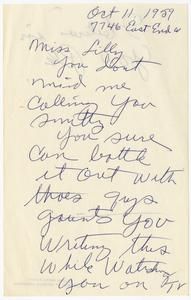 Oct 11, 1959
7746 East End
Miss Lilly
You dont
mind me
calling you
smitty
You sure
can battle
it out with
thoes guys
you
writing this
while watching
you on